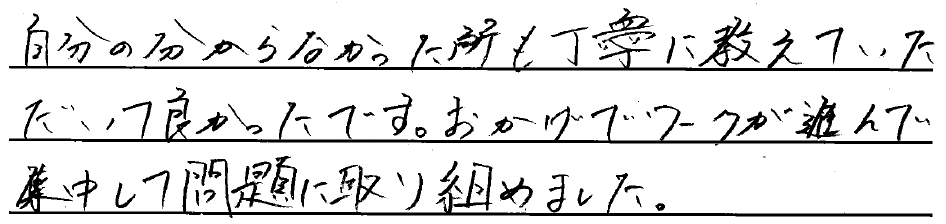 自分の分からなかった所も丁寧に教えていた
だいて良かったです。おかげでワークが進んで
集中して問題に取り組めました。